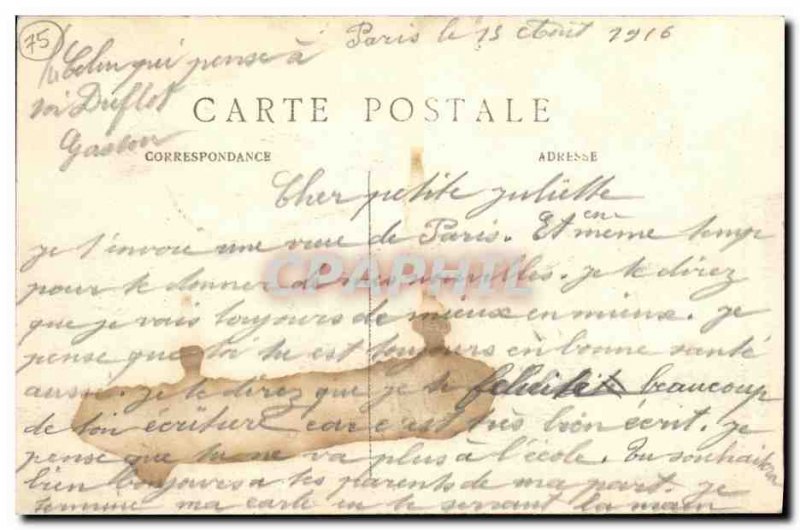 75
Paris le 15 Août 1916
qui pense à
toi Duflot
Gaston
CARTE POSTALE
CORRESPONDANCE
ADRESSE
Cher petite Juliette
je t'envoie une vue de Paris. Et en même temp
pour te donner de mes nouvelles. je te direz
que je vais toujours de mieux en mieux. je
pense que toi tu est toujours en bonne santé
aussi. je te direz que je te felicite beaucoup
de ton écriture car c'est très bien écrit. je
pense que tu ne va plus à l'école. Tu souhaitera
bien toujours a tes parents de ma part. je
termine ma carte en te serrant la main
CPAPHIL